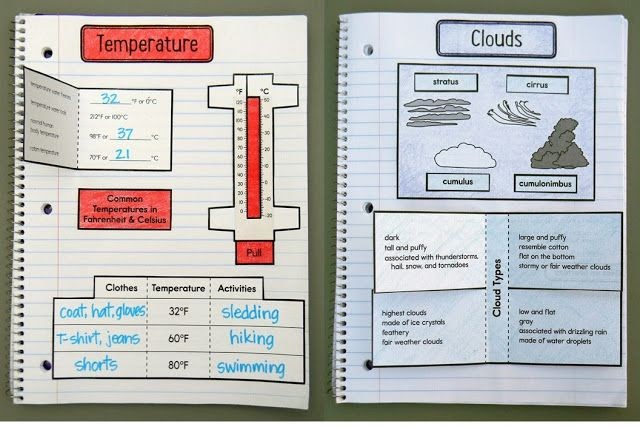 Temperature
temperature water freezes
32 °F or 0°C
temperature water boils
212°F or 100°C
normal human
body temperature
98°F or 37 °C
room temperature
70°F or 21 °C
Common
Temperatures in
Fahrenheit & Celsius
°F °C
Pull
Clothes Temperature Activities
coat, hat, gloves 32°F sledding
T-shirt, jeans 60°F hiking
shorts 80°F swimming
Clouds
stratus cirrus
cumulus cumulonimbus
dark
tall and puffy
associated with thunderstorms,
hail, snow, and tornadoes
Cloud Types
large and puffy
resemble cotton
flat on the bottom
stormy or fair weather clouds
highest clouds
made of ice crystals
feathery
fair weather clouds
low and flat
gray
associated with drizzling rain
made of water droplets